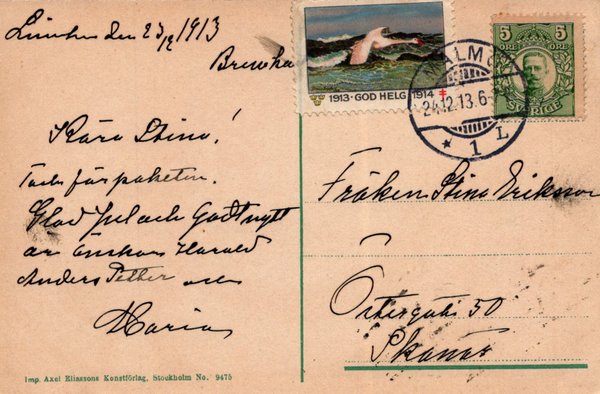 den 23/12 1913
1913 - GOD HELG - 1914
MALMÖ
24.12.13.6-
* 1 L
5 5
ÖRE ÖRE
SVERIGE
Kära Stina!
Tack för paketen.
Glad Jul och Godt nytt
år önskar Harald
Anders Petter och
Maria
Fröken Stina Erikson
Östergata 50
Skanör
Imp. Axel Eliassons Konstförlag, Stockholm No. 9475